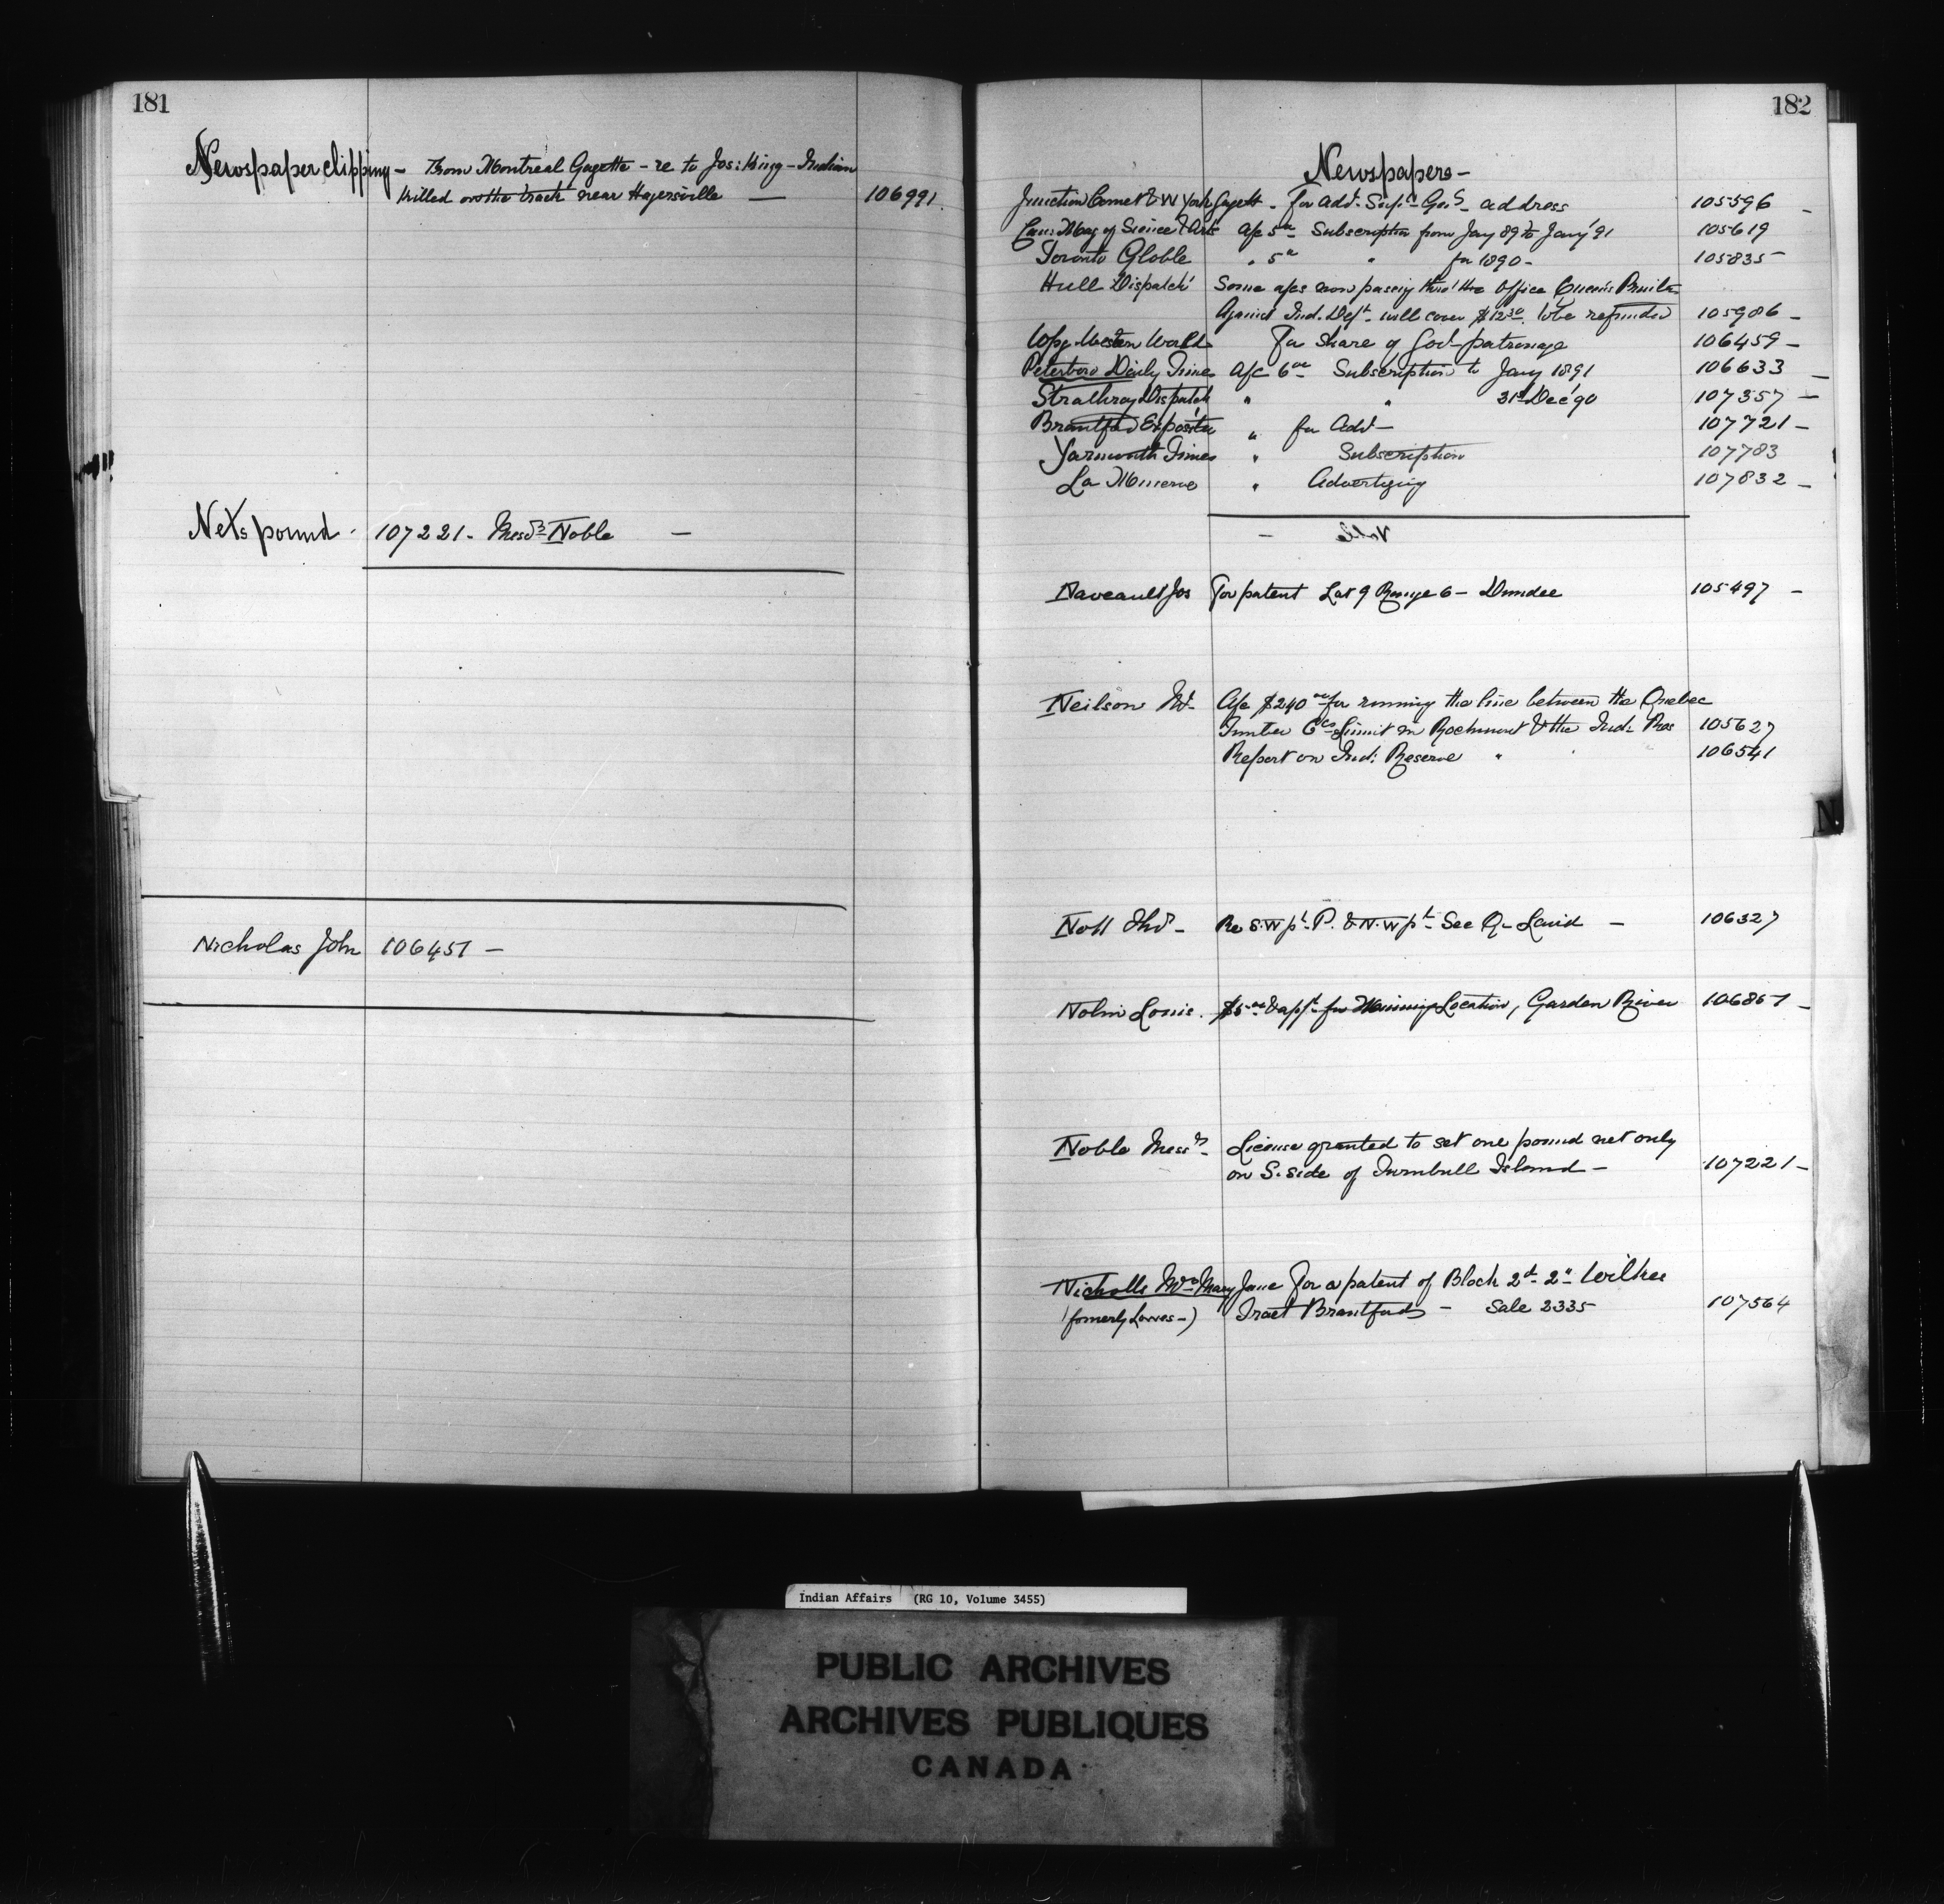 181
Newspaper clipping - From Montreal Gazette - re to Jos: King - Indian
killed on the track near Hagersville — 106991
Nets pound - 107221 - Mess.rs Noble —
Nicholas John 106457 —
182
Newspapers -
Junction Comet & W York Gazett - For Adt. Supt. Genl's address 105596 -
Can: Mag of Science & Arts a/c 5.00 Subscription from Jany 89 to Jany '91 105619
Toronto Globle " 5.00 " for 1890 - 105835 -
Hull Dispatch Some a/cs now passing thro' the Office Queen's Printer
Against Ind. Dept. will cover $12.30 to be refunded 105986 -
Wpg Western World For share of Govt patronage 106459 -
Peterboro Daily Times a/c 6.00 Subscription to Jany 1891 106633 -
Strathroy Dispatch " " 31st Dec '90 107357 -
Brantford Expositor " for Advt - 107721 -
Yarmouth Times " Subscription 107783
La Minerve " Advertizing 107832 -
Naveault Jos For patent Lot 9 Range 6 - Dundee 105497 -
Neilson a/c $240.00 for running the line between the Quebec
Timber Co's Limit in Rochmont & the Ind: Res 105627
Report on Ind: Reserve " 106541
Re S.W pt. P. & N.W pt. See - 106327
Nolin Louis. $5.00 & appt for Mining Location, Garden River 106867 -
Noble Mess.rs License granted to set one pound net only
on S. side of Turnbull Island - 107221 -
Nicholls Mrs Mary Jane For a patent of Block 2d. 2" Wilkes
(formerly -) Tract Brantford - Sale 2335 107564
N
Indian Affairs (RG 10, Volume 3455)
PUBLIC ARCHIVES
ARCHIVES PUBLIQUES
CANADA